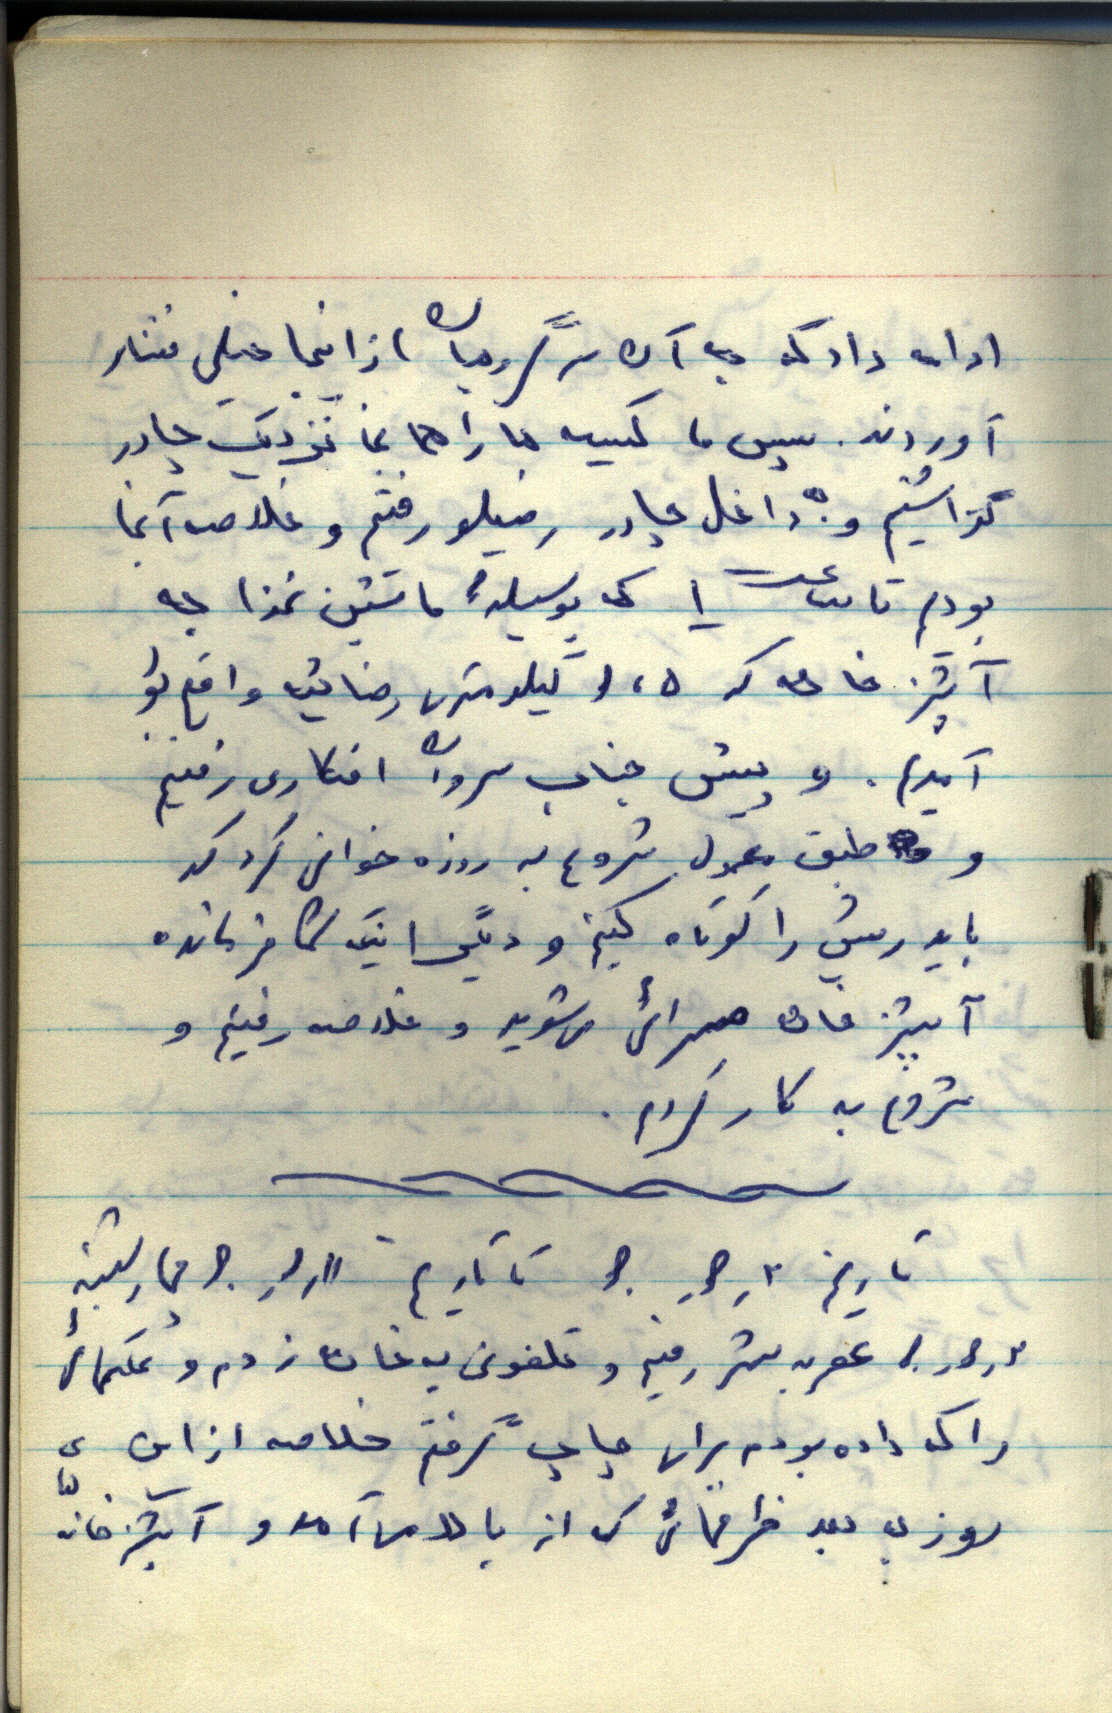 ادامه داد که به آن سرگروهبان از اینجا خیلی فشار
آوردند. سپس ما کیسه ها را همانجا نزدیک چادر
گذاشتیم و به داخل چادر رفتم و خلاصه آنجا
بودم تا ساعت ۱ که بوسیله ماشین غذا به
آشپزخانه که ۱،۵ کیلومتری واقع بود
آمدیم. و پیش جناب سروان افکاری رفتیم
و طبق معمول شروع به روزه خوانی کرد که
باید ریش را کوتاه کنیم و دیگر اینکه شما فرمانده
آشپزخانه صحرائی میشوید و خلاصه رفتیم و
شروع به کار کردم.
تاریخ تا تاریخ چهارشنبه
عصر به شهر رفتیم و تلفونی به خانه زدم و عکسهائی
را که داده بودم برای چاپ گرفتم خلاصه از این
روز به بعد ظرفهائی که از بالا می آمد و آشپزخانه